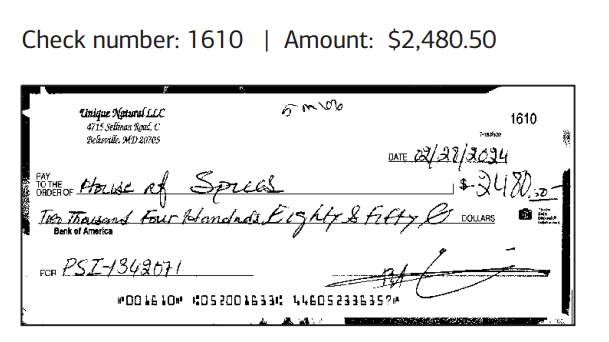 Check number: 1610 | Amount: $2,480.50
Unique Natural LLC
5 m
1610
4715 Sellman Road, C
Beltsville, MD 20705
DATE 02/28/2024
PAY TO THE ORDER OF House of Spices $2480.50
Two Thousand Four Hundred Eighty & Fifty DOLLARS
Bank of America
FOR PSI-1342071
⑈001610⑈ ⑆052001633⑆ 446052336357⑈